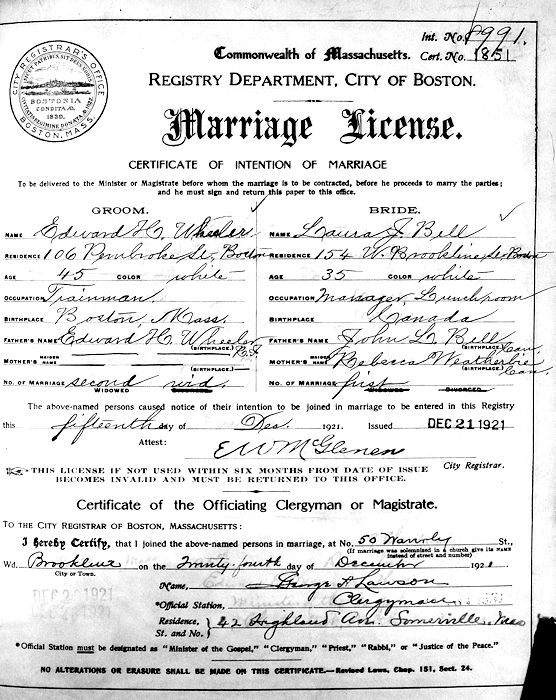 Int. No. 8991.
Commonwealth of Massachusetts. Cert. No. 1851
CITY REGISTRAR'S OFFICE
BOSTONIA
CONDITA A.
1630.
BOSTON, MASS.
REGISTRY DEPARTMENT, CITY OF BOSTON.
Marriage License.
CERTIFICATE OF INTENTION OF MARRIAGE
To be delivered to the Minister or Magistrate before whom the marriage is to be contracted, before he proceeds to marry the parties;
and he must sign and return this paper to this office.
GROOM. BRIDE.
NAME Edward H. Wheeler NAME Laura J. Bell
RESIDENCE 106 Pembroke St, Boston RESIDENCE 154 W. Brookline St, Boston
AGE 45 COLOR white AGE 35 COLOR white
OCCUPATION Trainman OCCUPATION Manager, Lunchroom
BIRTHPLACE Boston, Mass. BIRTHPLACE Canada
FATHER'S NAME Edward H. Wheeler (BIRTHPLACE.) R.I. FATHER'S NAME John L. Bell (BIRTHPLACE.) Can
MOTHER'S MAIDEN NAME (BIRTHPLACE.) MOTHER'S MAIDEN NAME Rebecca Weatherbie (BIRTHPLACE.) Can.
NO. OF MARRIAGE second wid. NO. OF MARRIAGE first
WIDOWED WIDOWED DIVORCED
The above-named persons caused notice of their intention to be joined in marriage to be entered in this Registry
this fifteenth day of Dec. 1921. Issued DEC 21 1921
Attest: E W McGlenen
City Registrar.
THIS LICENSE IF NOT USED WITHIN SIX MONTHS FROM DATE OF ISSUE
BECOMES INVALID AND MUST BE RETURNED TO THIS OFFICE.
Certificate of the Officiating Clergyman or Magistrate.
TO THE CITY REGISTRAR OF BOSTON, MASSACHUSETTS:
I hereby Certify, that I joined the above-named persons in marriage, at No. 50 Waverly St.,
(If marriage was solemnized in a church give its NAME
instead of street and number)
Wd. Brookline on the Twenty-fourth day of December 1921
City or Town.
DEC 2 1921
Name, George A Lawson
*Official Station, Clergyman
Residence, St. and No. 42 Highland Ave. Somerville, Mass
*Official Station must be designated as "Minister of the Gospel," "Clergyman," "Priest," "Rabbi," or "Justice of the Peace."
NO ALTERATIONS OR ERASURE SHALL BE MADE ON THIS CERTIFICATE.—Revised Laws, Chap. 151, Sect. 24.